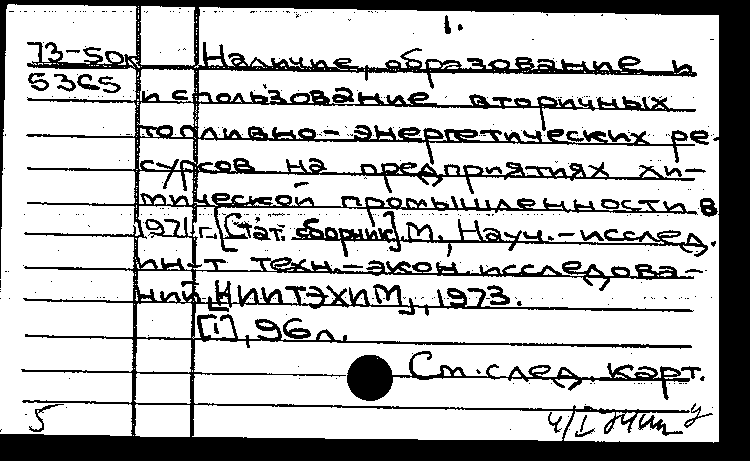 1.
73-50к Наличие, образование и
5365 использование вторичных
топливно-энергетических ре-
сурсов на предприятиях хи-
мической промышленности в
1971 г. [Стат. сборник]. М., Науч.-исслед.
ин-т техн.-экон. исследова-
ний, „НИИТЭХИМ", 1973.
[1], 96 л.
См. след. карт.
5